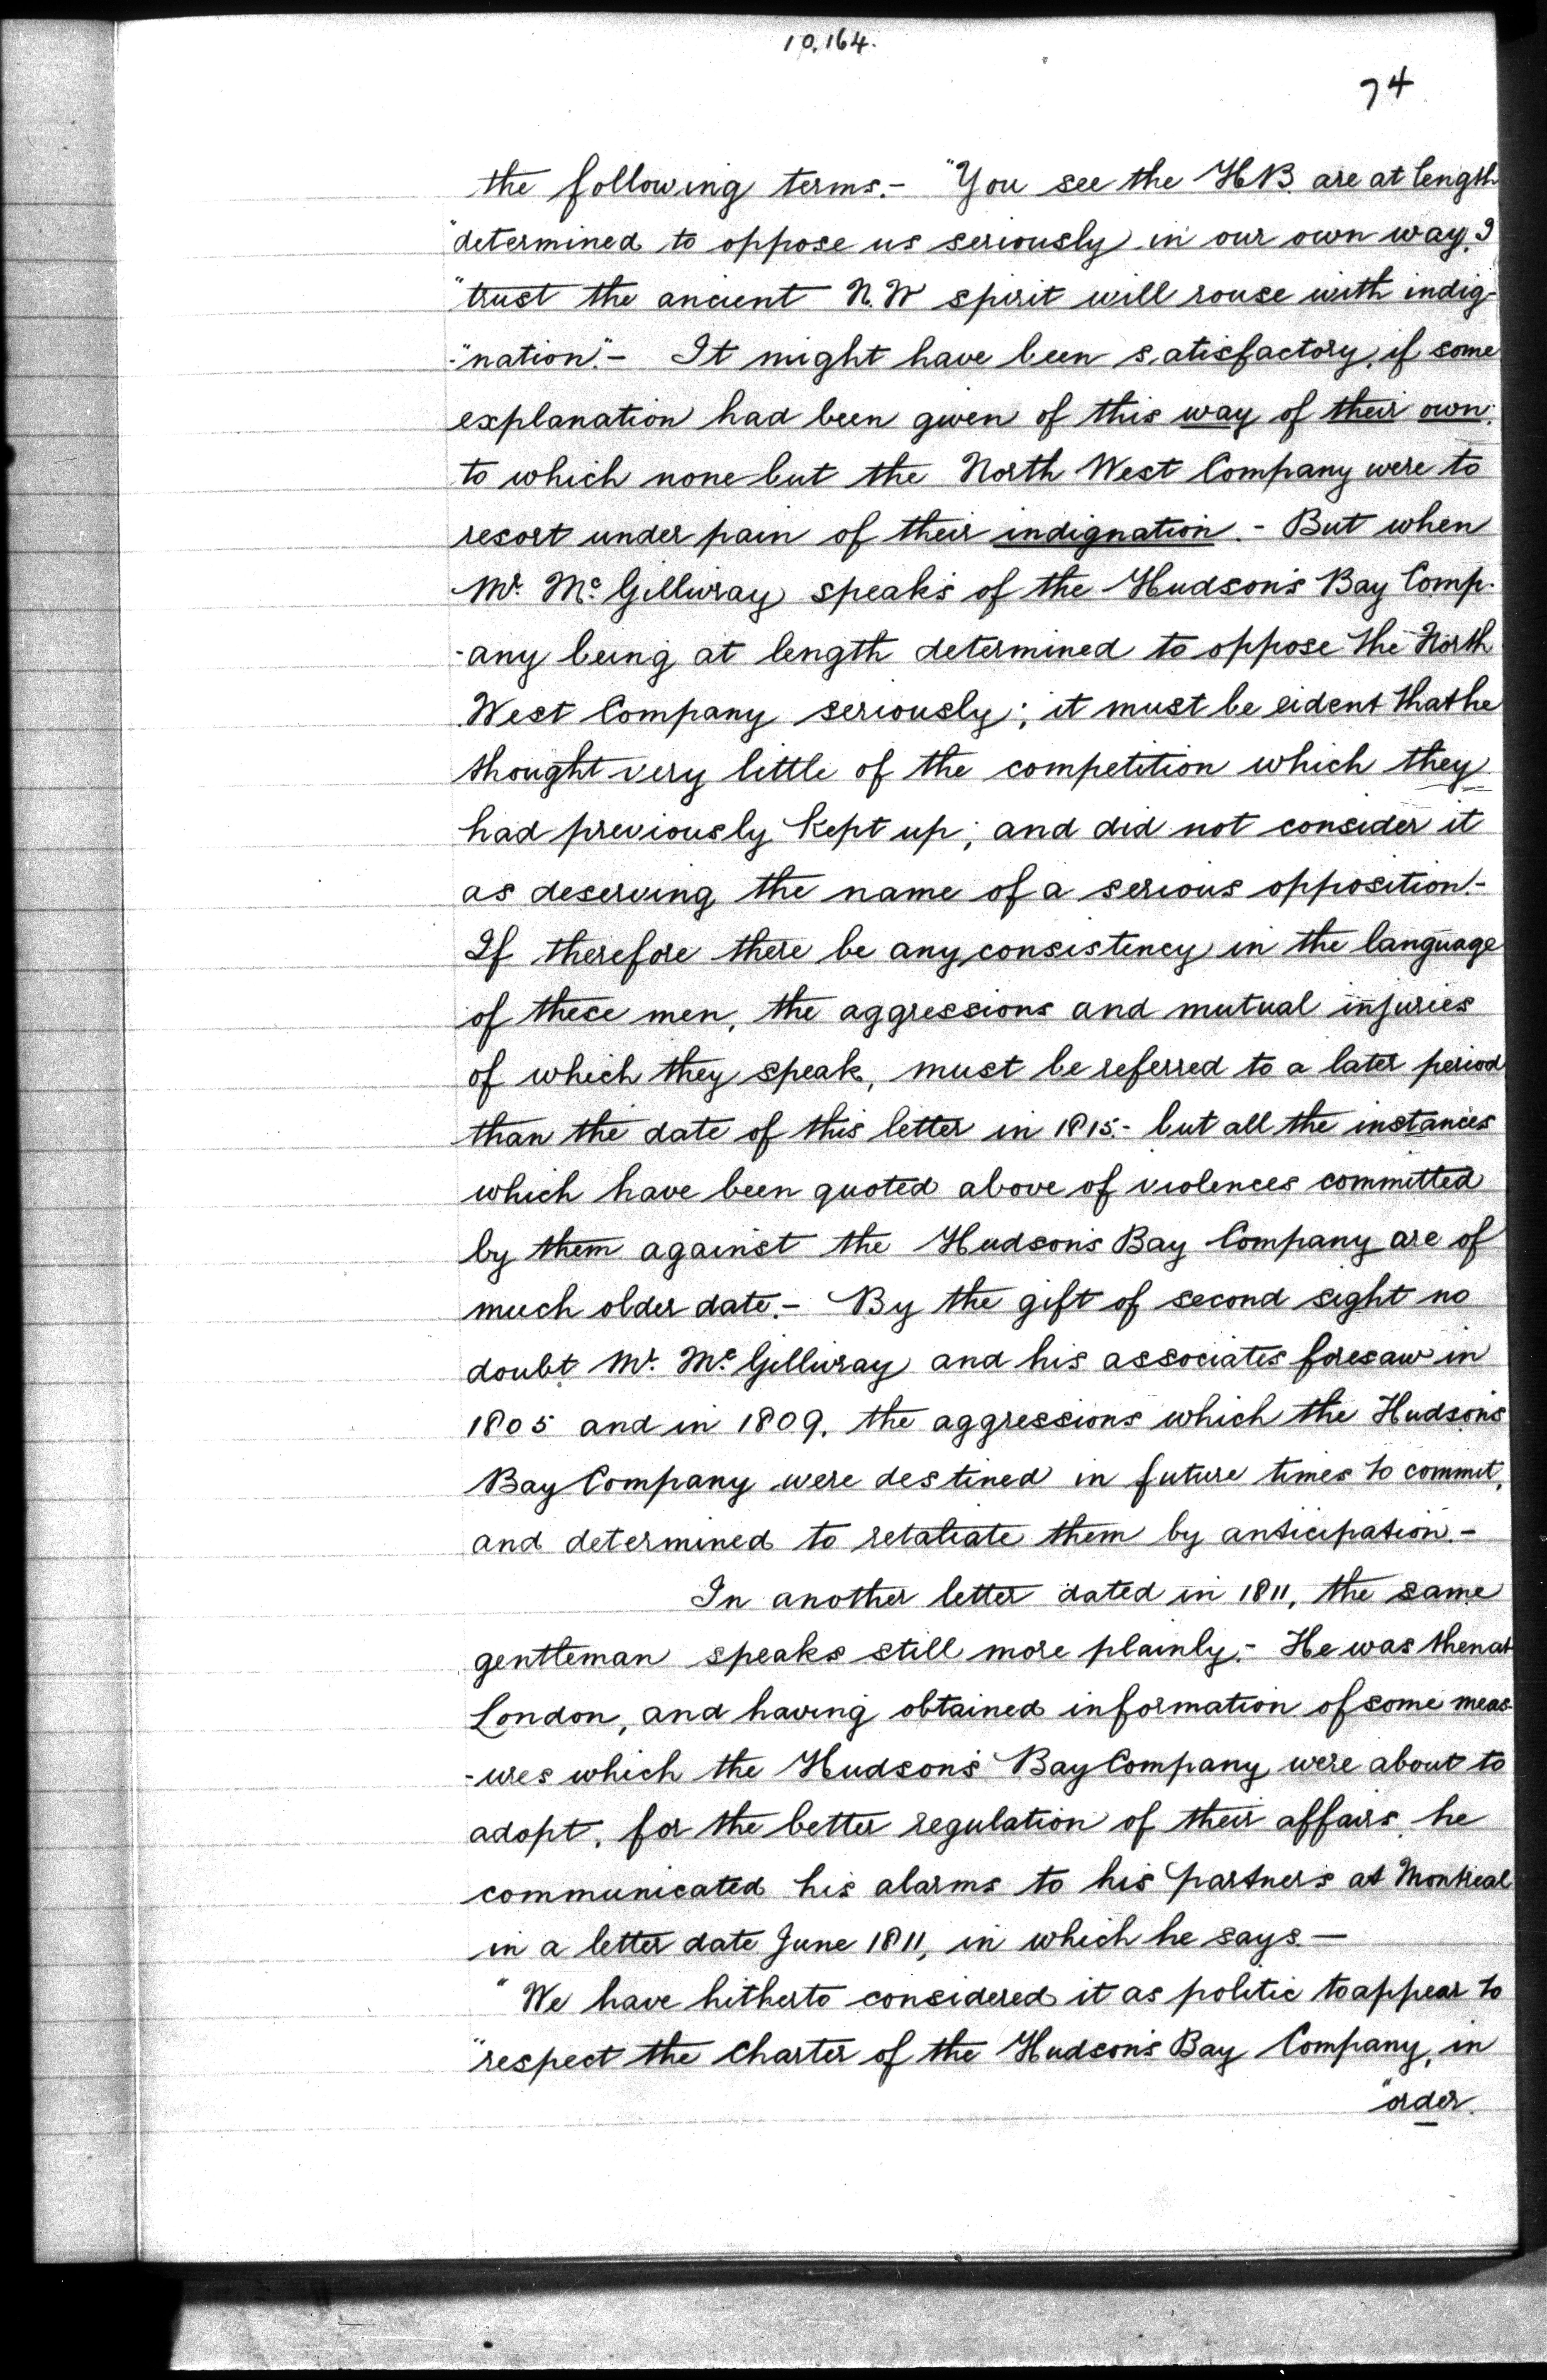 10,164.
74
the following terms.- "You see the HB. are at length
"determined to oppose us seriously in our own way. I
"trust the ancient N.W spirit will rouse with indig-
-"nation".- It might have been satisfactory, if some
explanation had been given of this way of their own.
to which none but the North West Company were to
resort under pain of their indignation.- But when
Mr. Mc. Gillivray speaks of the Hudson's Bay Comp-
-any being at length determined to oppose the North
West Company seriously; it must be eident that he
thought very little of the competition which they
had previously kept up; and did not consider it
as deserving the name of a serious opposition.-
If therefore there be any consistency in the language
of these men, the aggressions and mutual injuries
of which they speak, must be referred to a later period
than the date of this letter in 1815.- but all the instances
which have been quoted above of violences committed
by them against the Hudson's Bay Company are of
much older date.- By the gift of second sight no
doubt Mr. Mc. Gillivray and his associates foresaw in
1805 and in 1809, the aggressions which the Hudson's
Bay Company were destined in future times to commit,
and determined to retaliate them by anticipation.-
In another letter dated in 1811, the same
gentleman speaks still more plainly.- He was then at
London, and having obtained information of some meas-
-ures which the Hudson's Bay Company were about to
adopt, for the better regulation of their affairs, he
communicated his alarms to his partners at Montreal
in a letter date June 1811, in which he says.-
"We have hitherto considered it as politic to appear to
"respect the Charter of the Hudson's Bay Company, in
"order.